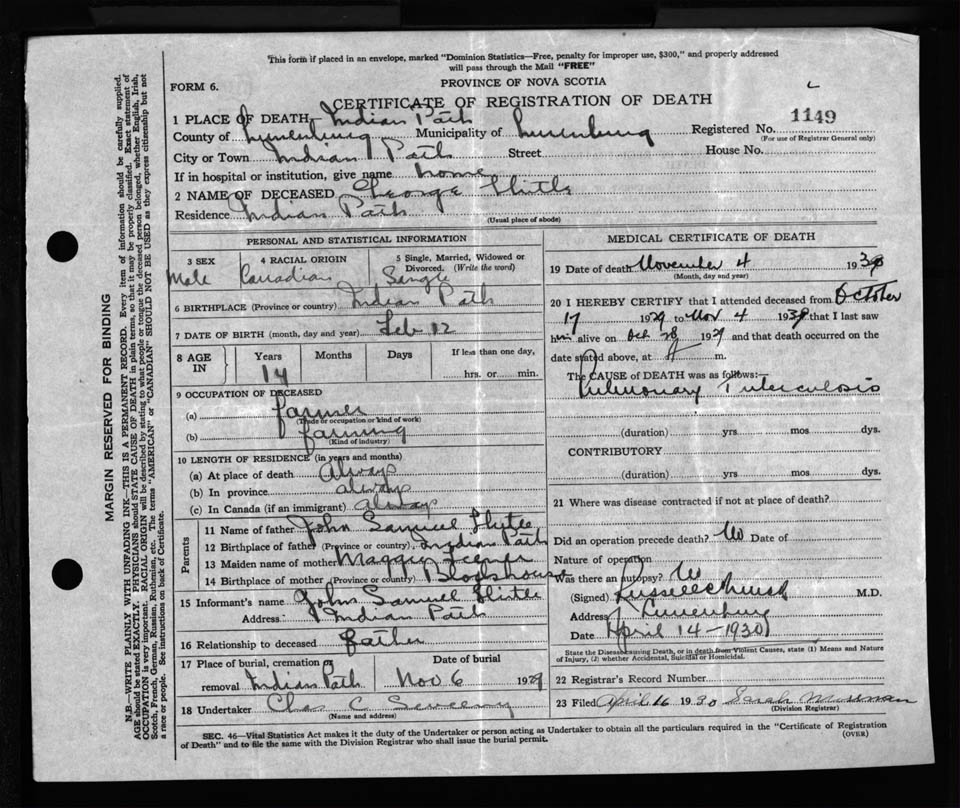 This form if placed in an envelope, marked "Dominion Statistics—Free, penalty for improper use, $300," and properly addressed
will pass through the Mail "FREE"
FORM 6.
PROVINCE OF NOVA SCOTIA
CERTIFICATE OF REGISTRATION OF DEATH
1 PLACE OF DEATH Indian Path
County of Lunenburg Municipality of Lunenburg Registered No. 1149
(For use of Registrar General only)
City or Town Indian Path Street House No.
If in hospital or institution, give name home
2 NAME OF DECEASED George
Residence Indian Path
(Usual place of abode)
PERSONAL AND STATISTICAL INFORMATION
3 SEX 4 RACIAL ORIGIN 5 Single, Married, Widowed or
Divorced. (Write the word)
Male Canadian Single
6 BIRTHPLACE (Province or country) Indian Path
7 DATE OF BIRTH (month, day and year) Feb 12
8 AGE IN Years Months Days If less than one day,
14 hrs. or min.
9 OCCUPATION OF DECEASED
(a) farmer
(Trade or occupation or kind of work)
(b) farming
(Kind of industry)
10 LENGTH OF RESIDENCE (in years and months)
(a) At place of death Always
(b) In province always
(c) In Canada (if an immigrant) always
Parents
11 Name of father John Samuel
12 Birthplace of father (Province or country) Indian Path
13 Maiden name of mother Maggie
14 Birthplace of mother (Province or country)
15 Informant's name John Samuel
Address Indian Path
16 Relationship to deceased father
17 Place of burial, cremation or Date of burial
removal Indian Path Nov 6 1929
18 Undertaker Chas C
(Name and address)
MEDICAL CERTIFICATE OF DEATH
19 Date of death November 4 193
(Month, day and year)
20 I HEREBY CERTIFY that I attended deceased from October
17 1929 to Nov 4 193 that I last saw
him alive on Oct 28 1929 and that death occurred on the
date stated above, at m.
The CAUSE of DEATH was as follows:—
Pulmonary Tuberculosis
(duration) yrs mos dys.
CONTRIBUTORY
(duration) yrs mos dys.
21 Where was disease contracted if not at place of death?
Did an operation precede death? No Date of
Nature of operation
Was there an autopsy?
(Signed) M.D.
Address Lunenburg
Date April 14 - 1930
State the Disease causing Death, or in death from Violent Causes, state (1) Means and Nature
of Injury, (2) whether Accidental, Suicidal or Homicidal.
22 Registrar's Record Number
23 Filed April 16 1930 Sarah
(Division Registrar)
SEC. 46—Vital Statistics Act makes it the duty of the Undertaker or person acting as Undertaker to obtain all the particulars required in the "Certificate of Registration
of Death" and to file the same with the Division Registrar who shall issue the burial permit.
(OVER)
MARGIN RESERVED FOR BINDING
N.B.—WRITE PLAINLY WITH UNFADING INK—THIS IS A PERMANENT RECORD. Every item of information should be carefully supplied.
AGE should be stated EXACTLY. PHYSICIANS should STATE CAUSE OF DEATH in plain terms, so that it may be properly classified. Exact statement of
OCCUPATION is very important. RACIAL ORIGIN will be described by stating to what people or tongue the deceased person belonged, whether English, Irish,
Scotch, French, German, Russian, Ruthenian, etc. The terms "AMERICAN" or "CANADIAN" SHOULD NOT BE USED as they express citizenship but not
a race or people. See instructions on back of Certificate.